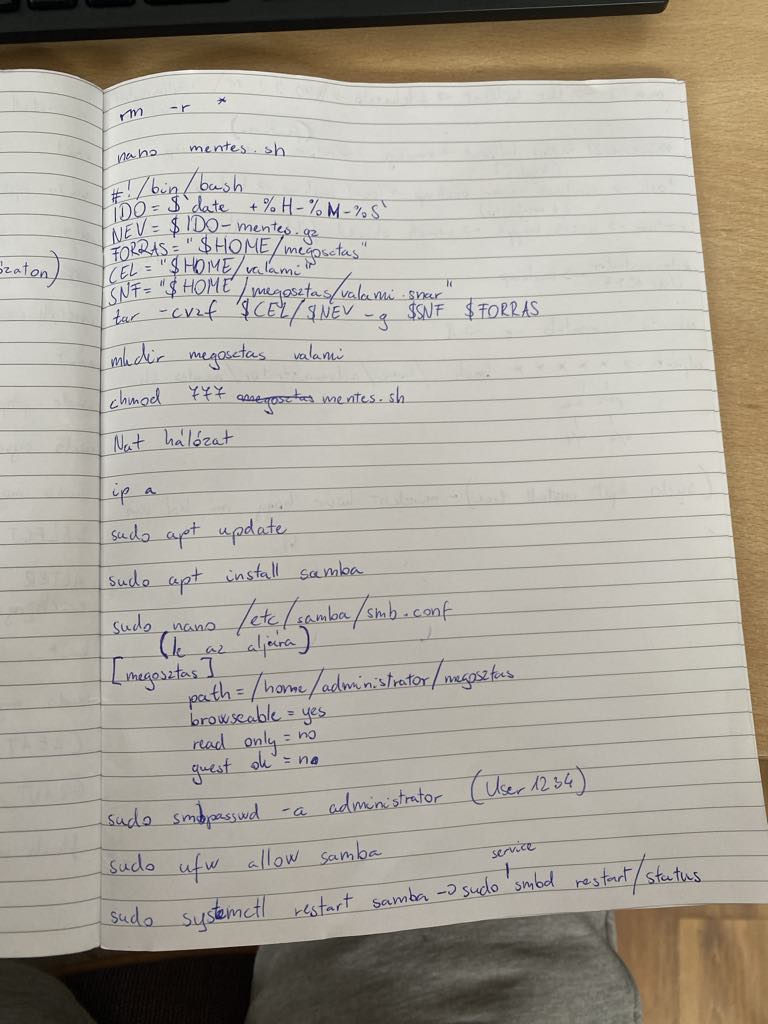 ózaton)
rm -r *
nano mentes.sh
#!/bin/bash
IDO=$`date +%H-%M-%S`
NEV=$IDO-mentes.gz
FORRAS="$HOME/megosztas"
CEL="$HOME/valami"
SNF="$HOME/megosztas/valami.snar"
tar -cvzf $CEL/$NEV -g $SNF $FORRAS
mkdir megosztas valami
chmod 777 megosztas mentes.sh
Nat hálózat
ip a
sudo apt update
sudo apt install samba
sudo nano /etc/samba/smb.conf
(le az aljára)
[megosztas]
path=/home/administrator/megosztas
browseable = yes
read only = no
guest ok = no
sudo smbpasswd -a administrator (User1234)
sudo ufw allow samba
service
sudo systemctl restart samba -> sudo smbd restart/status